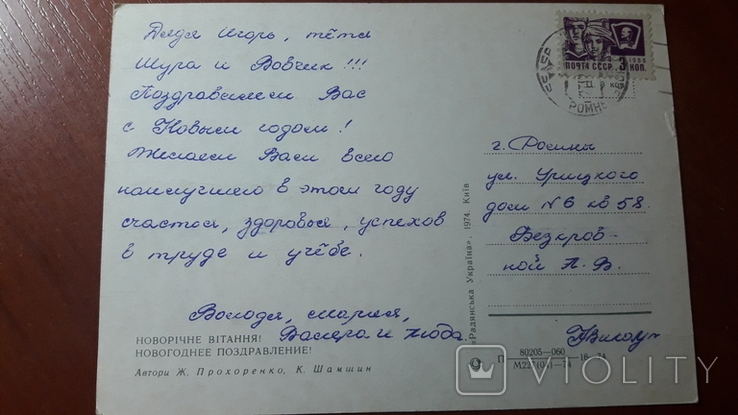 Дядя Игорь, тётя
Шура и Вовчик!!!
Поздравляем Вас
с Новым годом!
Желаем Вам всего
наилучшего в этом году
счастья, здоровья, успехов
в труде и учёбе.
Володя, Мария,
Валера и Люда.
НОВОРІЧНЕ ВІТАННЯ!
НОВОГОДНЕЕ ПОЗДРАВЛЕНИЕ!
Автори Ж. Прохоренко, К. Шамшин
«Радянська Україна», 1974. Київ
ПОЧТА СССР 3 КОП.
1966
РОМНЫ
г. Ромны
ул. Урицкого
дом N6 кв 58.
Безкров-
ной Л. В.
80205—060
М227(04)—74
VIOLITY